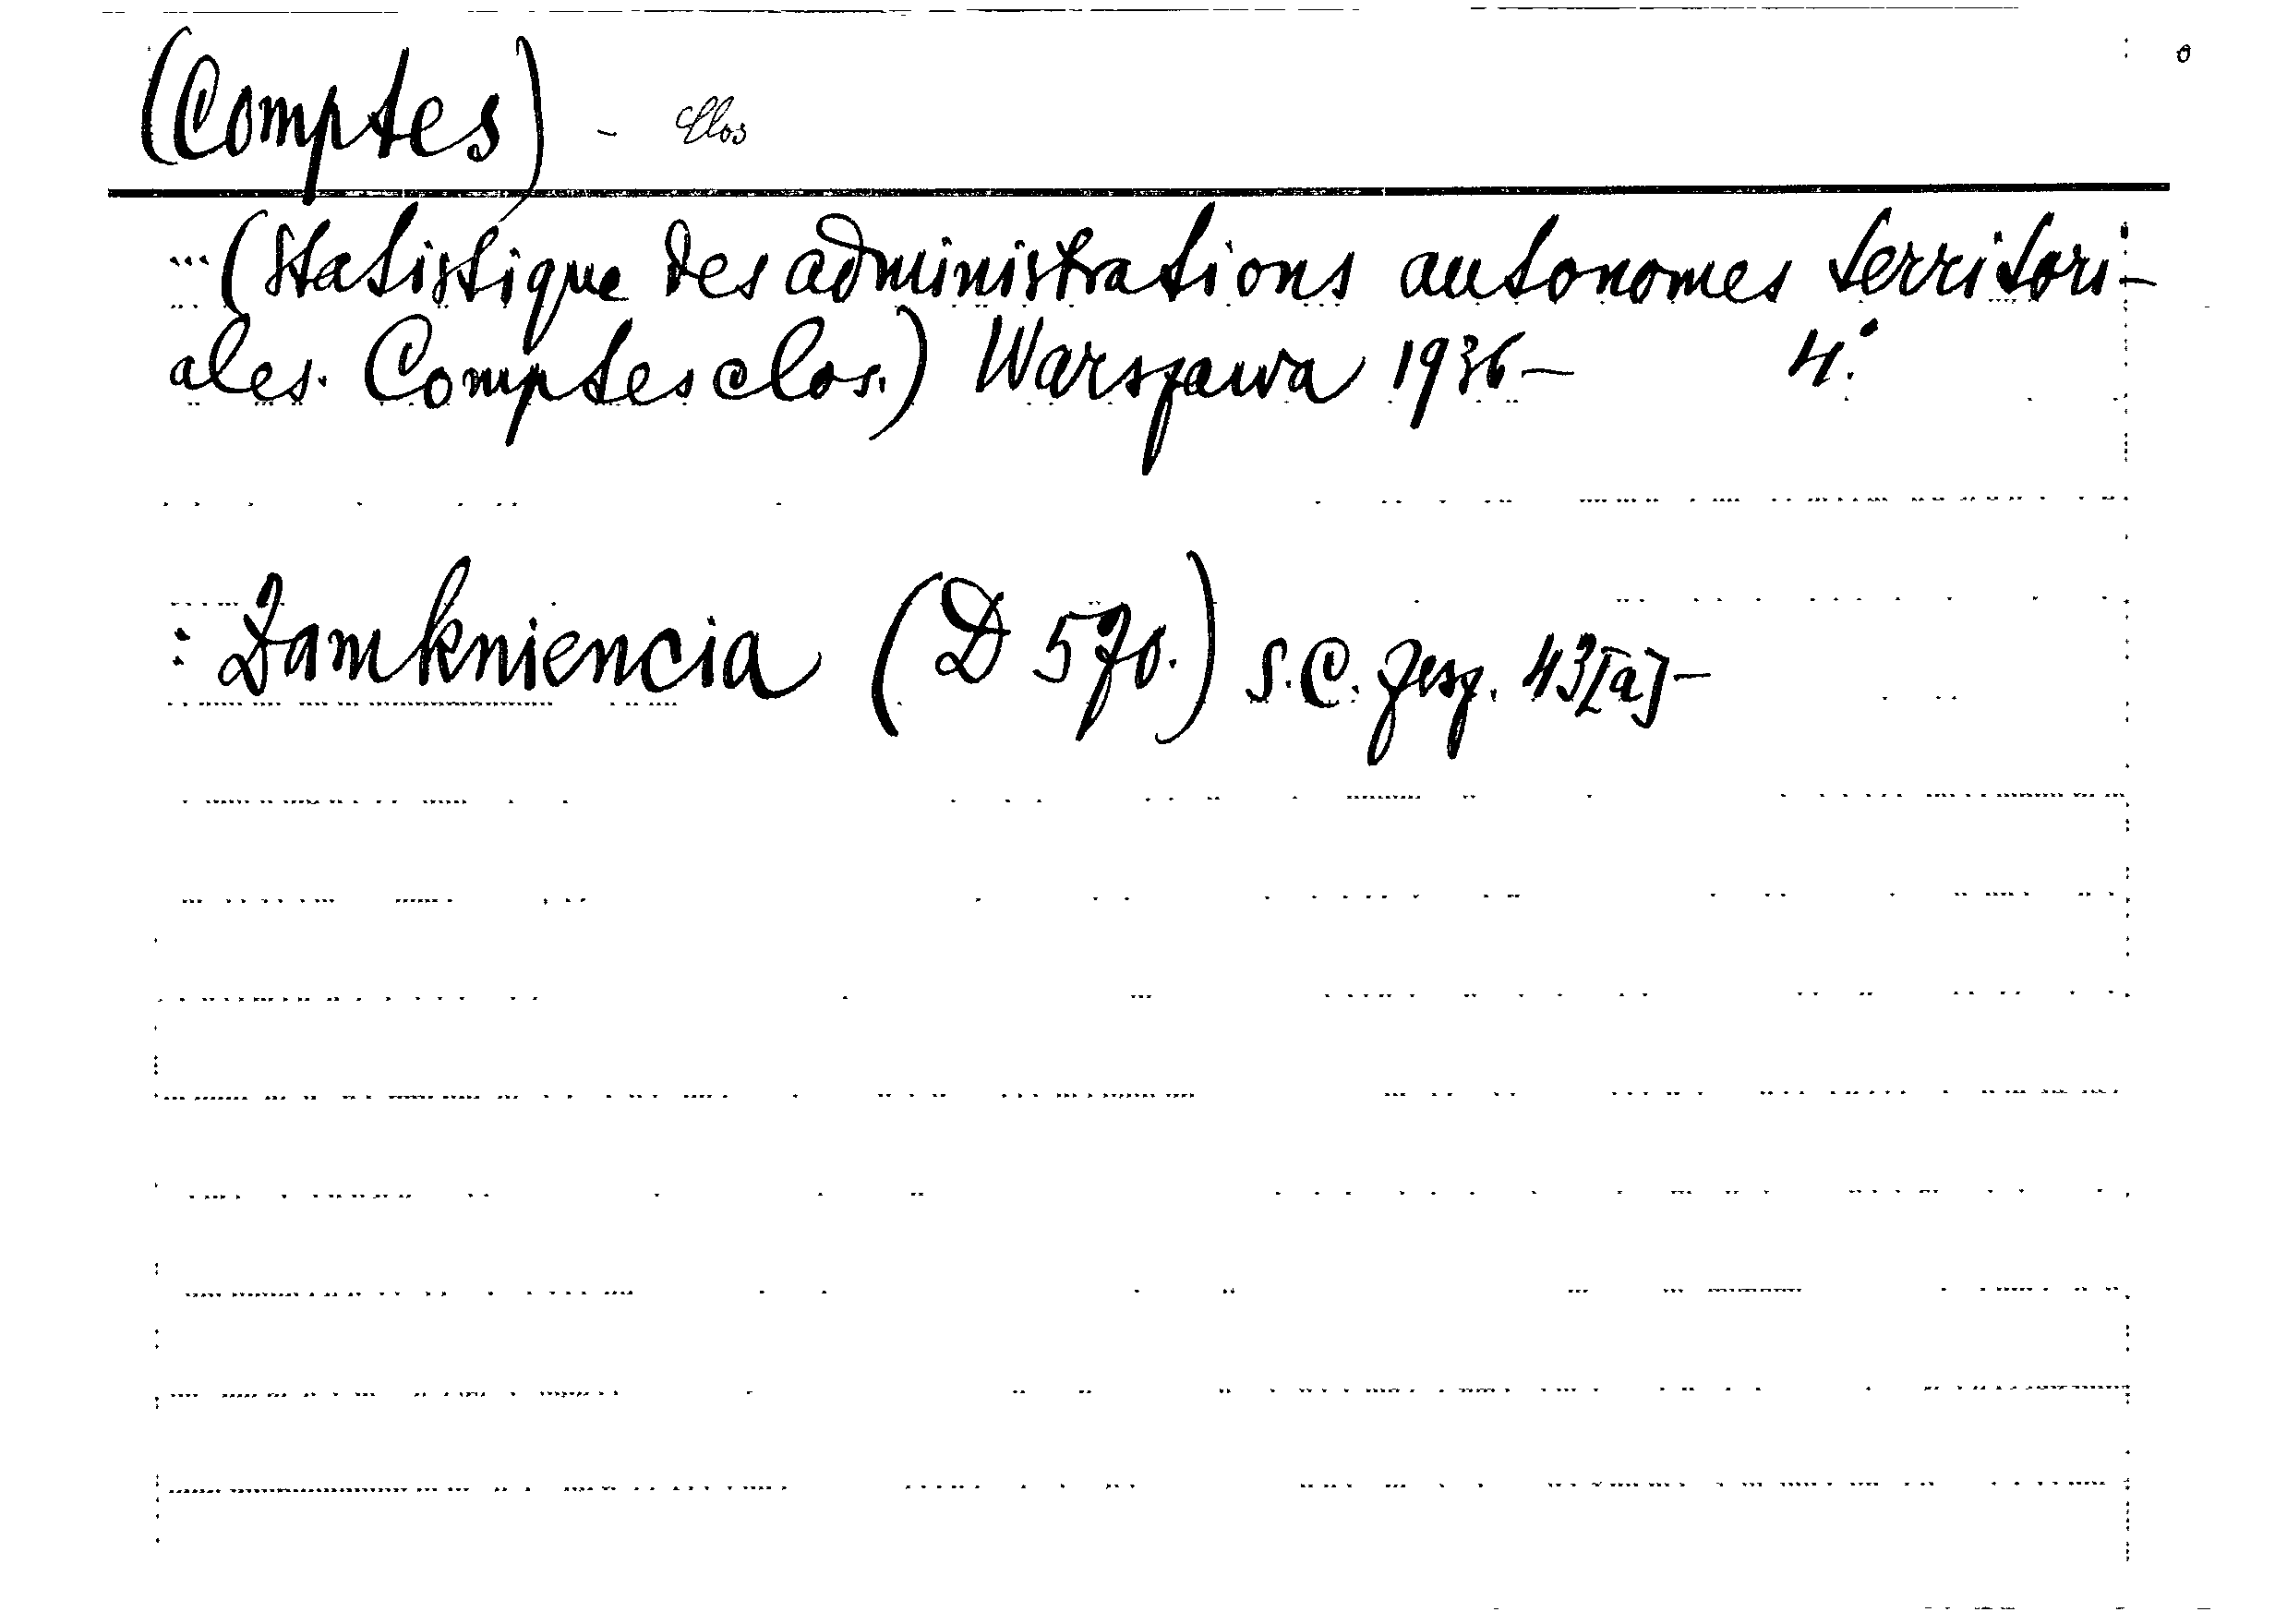 (Comptes) - Clos
(Statistique des administrations autonomes territori-
ales. Comptes clos.) Warszawa 1936- 4:
: Zamkniencia (D 570.) S.C. zesz. 43[a]-